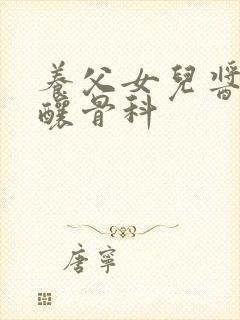 養父女兒醬
釀骨科
唐寧